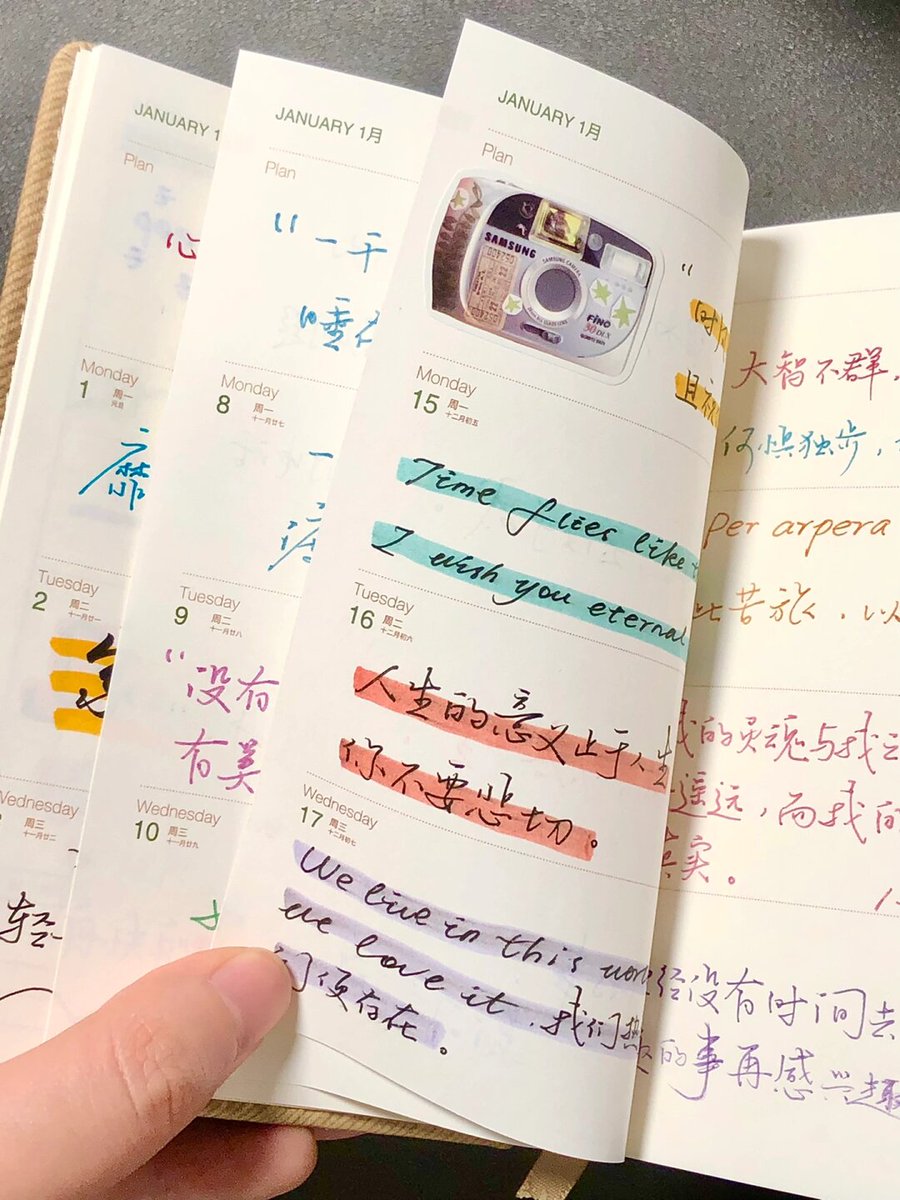 JANUARY 1
Plan
心
Monday
1 周一
元旦
靡
Tuesday
2 周二
十一月廿一
Wednesday
周三
十一月廿二
轻
JANUARY 1月
Plan
"一千
Monday
8 周一
十一月廿七
一
Tuesday
9 周二
十一月廿八
"没有
有美
Wednesday
10 周三
十一月廿九
JANUARY 1月
Plan
SAMSUNG
SAMSUNG CAMERA
FINO
30 DLX
Monday
15 周一
十二月初五
Time flies like
I wish you eternal
Tuesday
16 周二
十二月初六
人生的意义止于人生
你不要悲切。
Wednesday
17 周三
十二月初七
We live in this
we love it,我们热
们便存在。
大智不群,
何惧独步,
Per arpera
此苦旅,以
我的灵魂与我
遥远,而我的
真实。
没有时间去
的事再感兴趣